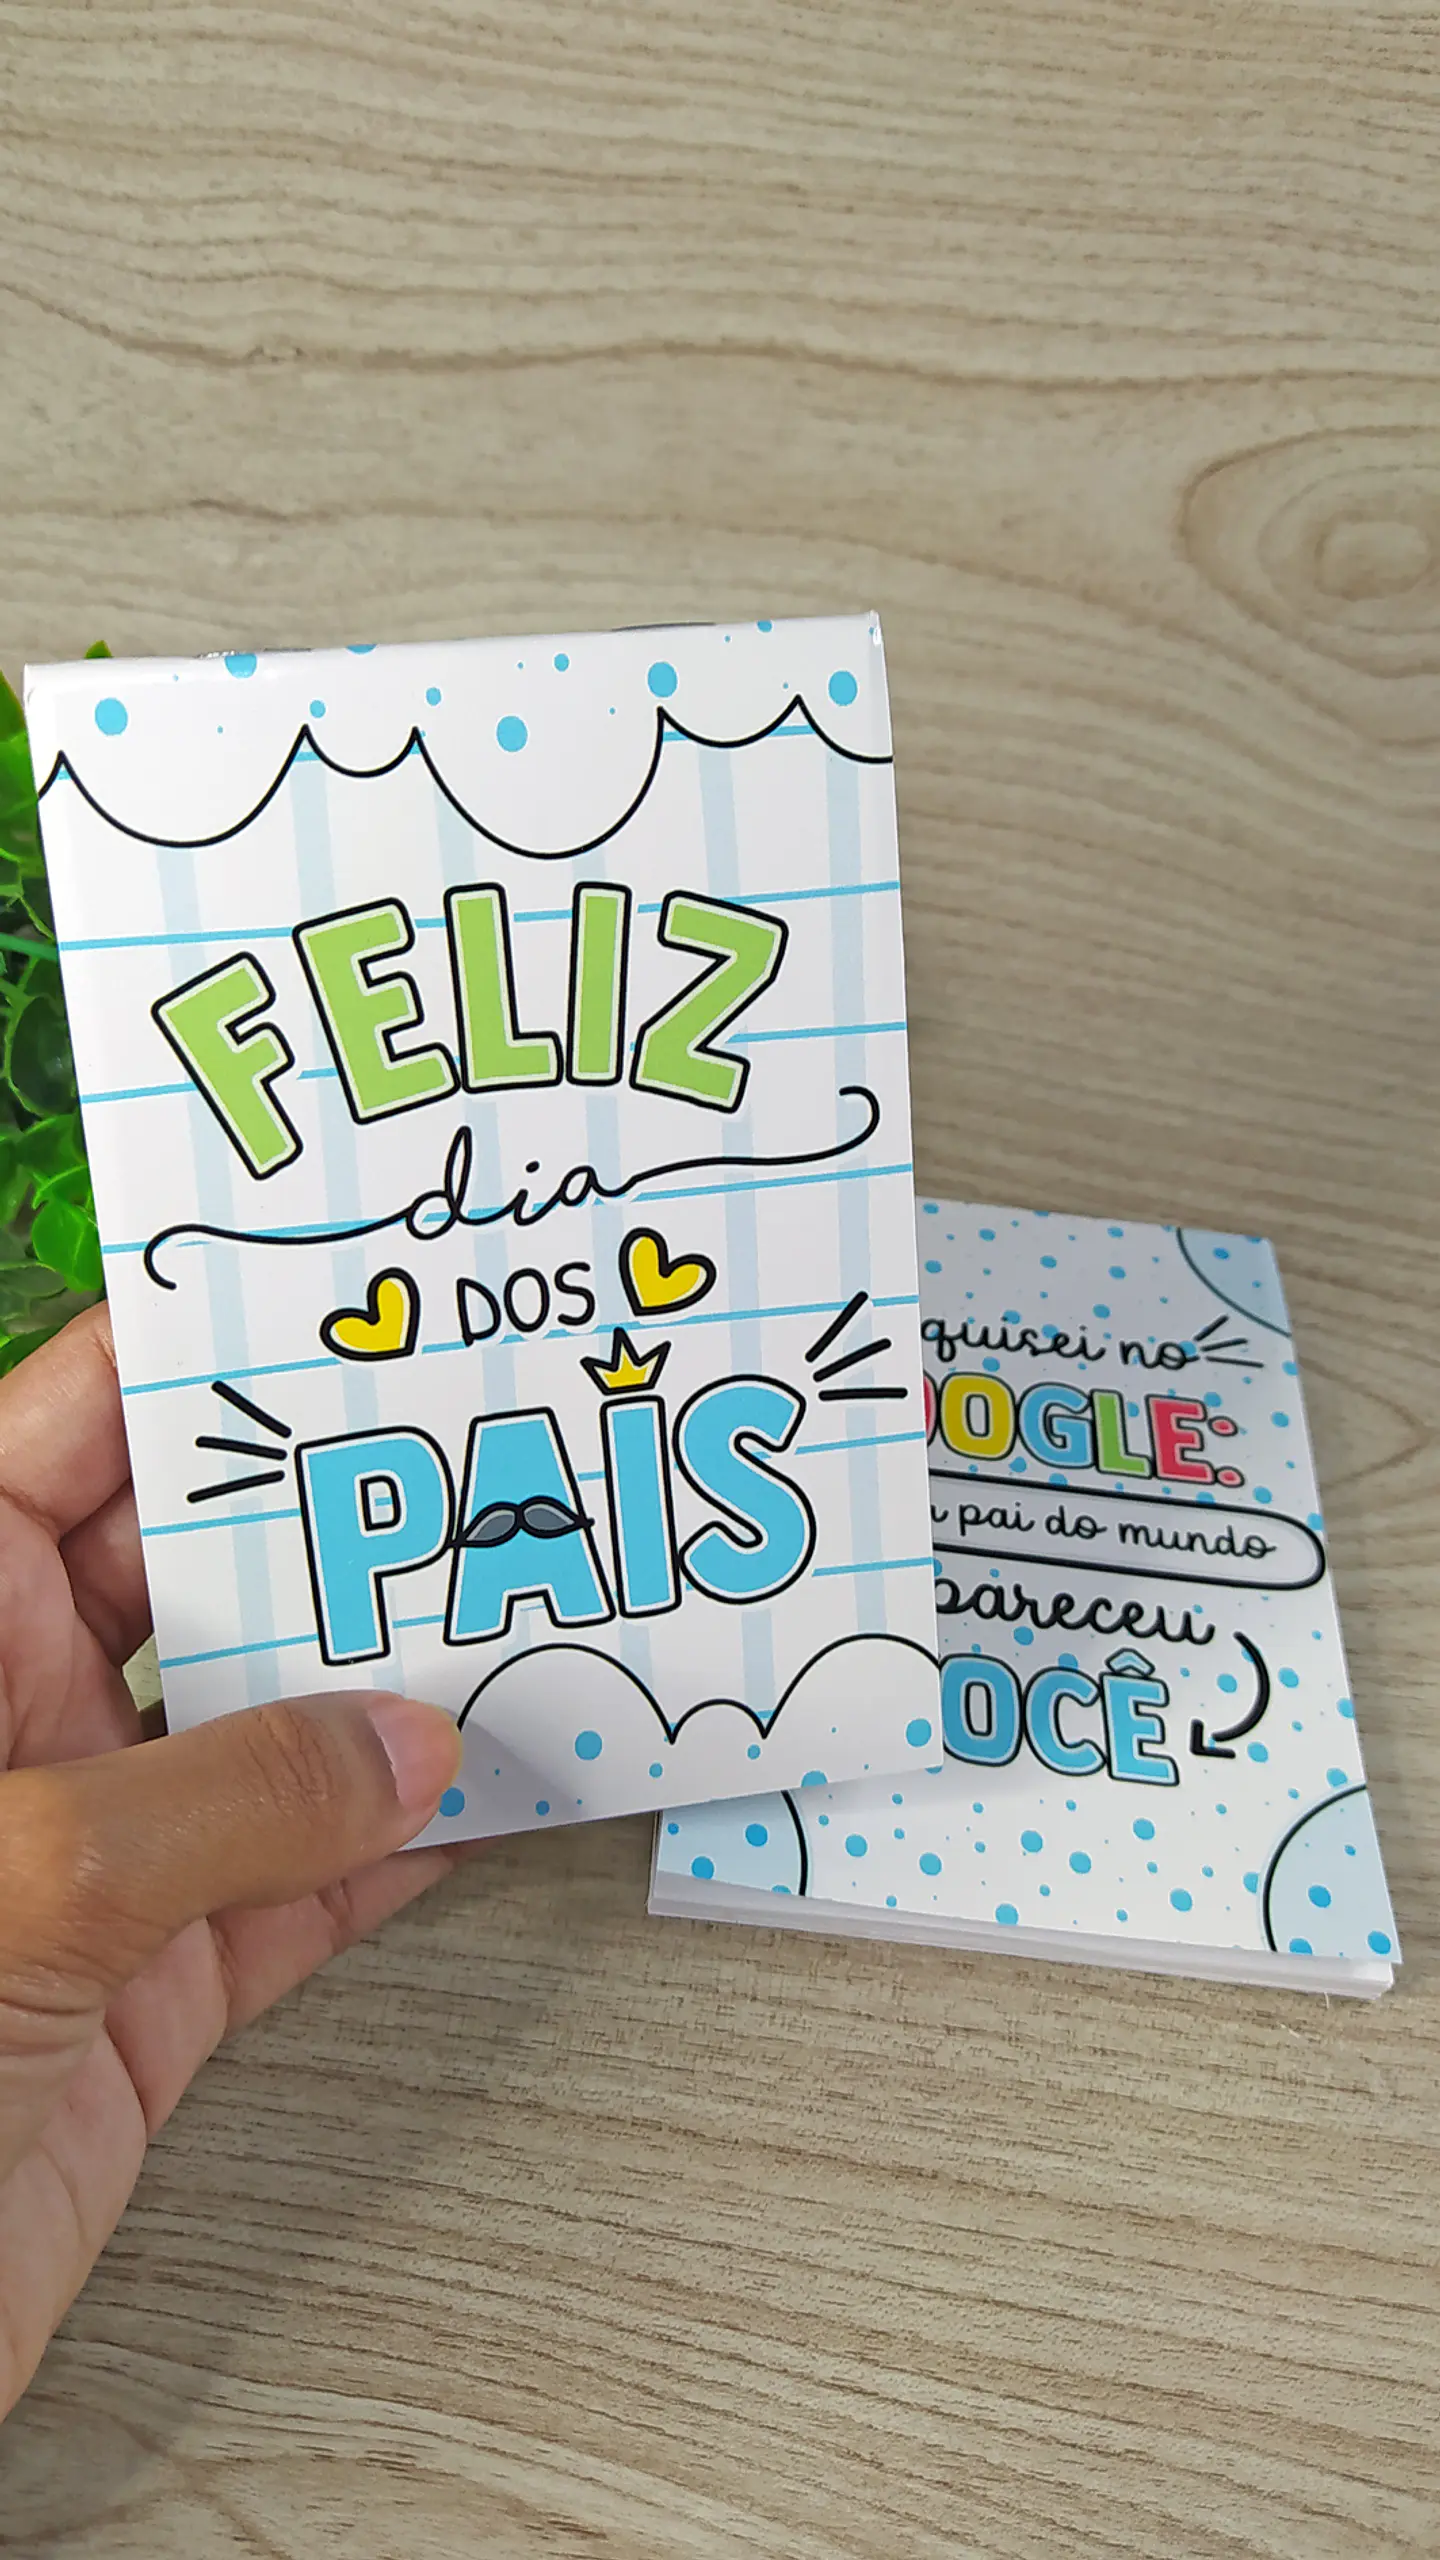 FELIZ
dia
DOS
PAIS
quisei no
OOGLE:
pai do mundo
pareceu
OCÊ